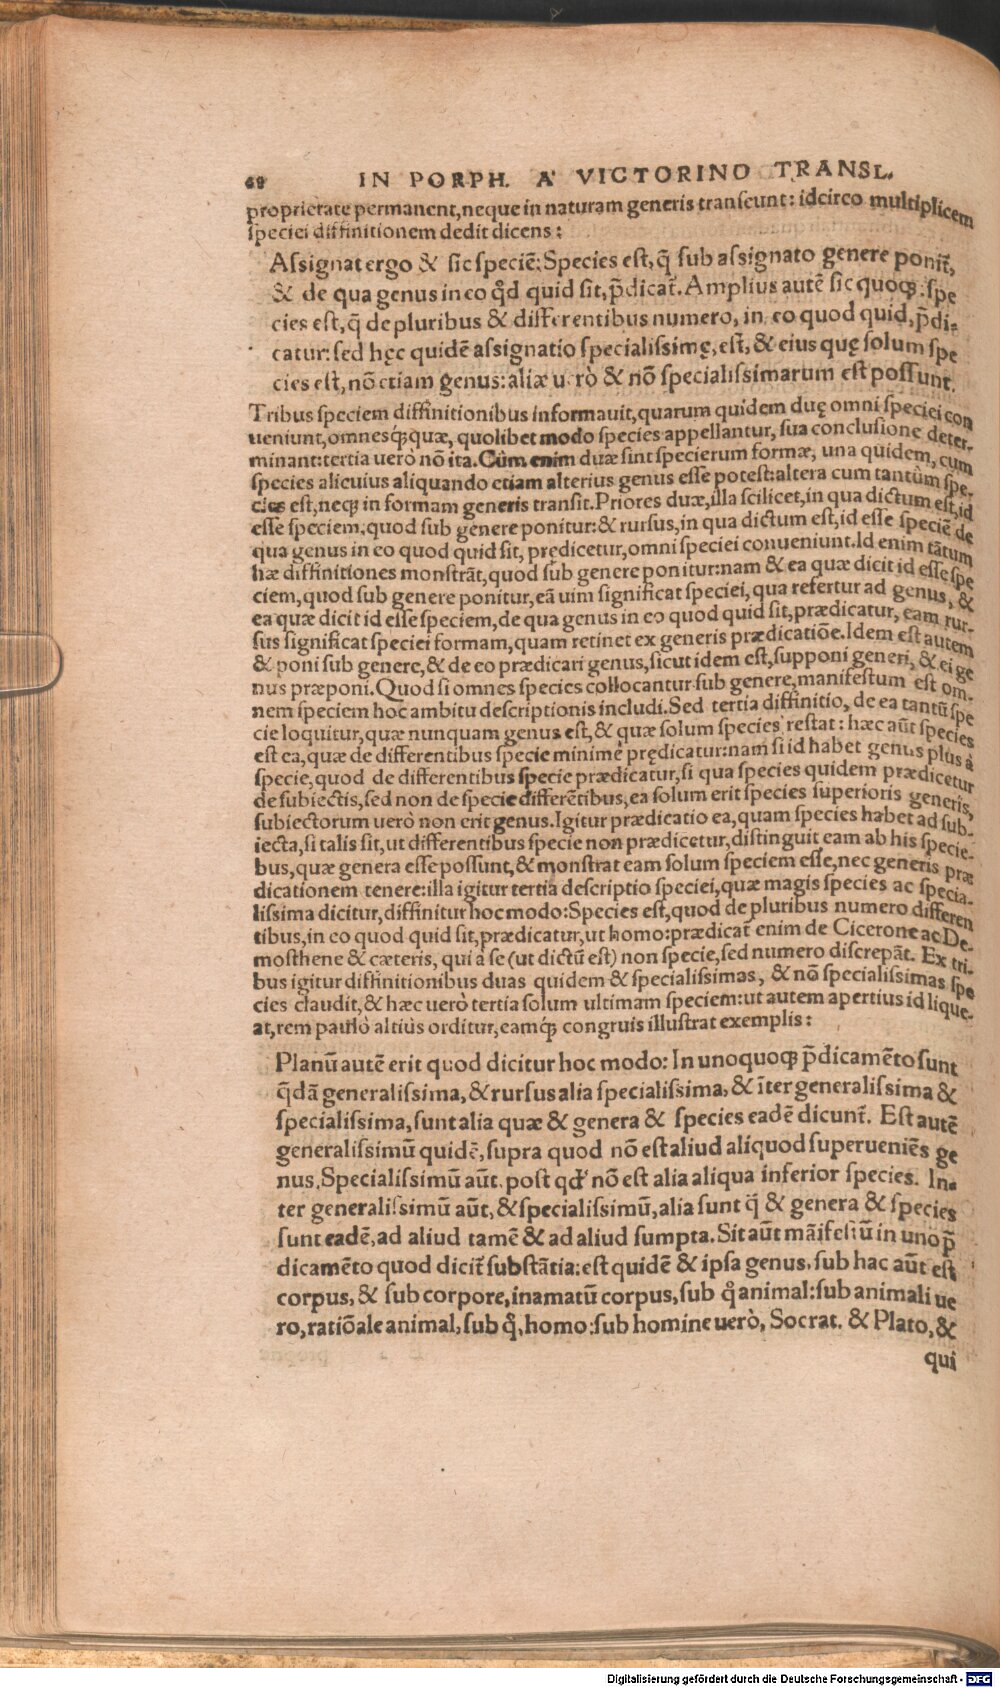 68 IN PORPH. A' VICTORINO TRANSL.
proprietate permanent,neque in naturam generis transeunt: idcirco multiplicem
speciei diffinitionem dedit dicens:
Assignat ergo & sic speciē: Species est, q̄ sub assignato genere ponit̃,
& de qua genus in eo qd̕ quid sit, p̄dicat̃. Amplius autē sic quoqꝫ: spe
cies est, q̄ de pluribus & differentibus numero, in eo quod quid, p̄di-
catur: sed hęc quidē assignatio specialissimę, est, & eius quę solum spe
cies est, nō etiam genus: aliæ uerò & nō specialissimarum esse possunt.
Tribus speciem diffinitionibus informauit, quarum quidem duę omni speciei con
ueniunt, omnesqꝫ quæ, quolibet modo species appellantur, sua conclusione deter-
minant: tertia uerò nō ita. Cùm enim duæ sint specierum formæ, una quidem, cum
species alicuius aliquando etiam alterius genus esse potest: altera cum tantùm spe-
cies est, neqꝫ in formam generis transit. Priores duæ, illa scilicet, in qua dictum est, id
esse speciem, quod sub genere ponitur: & rursus, in qua dictum est, id esse speciē de
qua genus in eo quod quid sit, prędicetur, omni speciei conueniunt. Id enim tātum
hæ diffinitiones monstrāt, quod sub genere ponitur: nam & ea quæ dicit id esse spe
ciem, quod sub genere ponitur, eā uim significat speciei, qua refertur ad genus, &
ea quæ dicit id esse speciem, de qua genus in eo quod quid sit, prædicatur, eam rur-
sus significat speciei formam, quam retinet ex generis prædicatiōe. Idem est autem
& poni sub genere, & de eo prædicari genus, sicut idem est, supponi generi, & ei ge
nus præponi. Quod si omnes species collocantur sub genere, manifestum est om-
nem speciem hoc ambitu descriptionis includi. Sed tertia diffinitio, de ea tantū spe
cie loquitur, quæ nunquam genus est, & quæ solum species restat: hæc aūt species
est ea, quæ de differentibus specie minimè prędicatur: nam si id habet genus plus à
specie, quod de differentibus specie prædicatur, si qua species quidem prædicetur
de subiectis, sed non de specie differētibus, ea solum erit species superioris generis,
subiectorum uerò non erit genus. Igitur prædicatio ea, quam species habet ad sub-
iecta, si talis sit, ut differentibus specie non prædicetur, distinguit eam ab his specie-
bus, quæ genera esse possunt, & monstrat eam solum speciem esse, nec generis præ
dicationem tenere: illa igitur tertia descriptio speciei, quæ magis species ac specia-
lissima dicitur, diffinitur hoc modo: Species est, quod de pluribus numero differen
tibus, in eo quod quid sit, prædicatur, ut homo: prædicat̃ enim de Cicerone ac De-
mosthene & cæteris, qui à se (ut dictū est) non specie, sed numero discrepāt. Ex tri-
bus igitur diffinitionibus duas quidem & specialissimas, & nō specialissimas spe
cies claudit, & hæc uerò tertia solum ultimam speciem: ut autem apertius id lique-
at, rem paulò altius orditur, eamqꝫ congruis illustrat exemplis:
Planū autē erit quod dicitur hoc modo: In unoquoqꝫ p̄dicamēto sunt
q̄dā generalissima, & rursus alia specialissima, & īter generalissima &
specialissima, sunt alia quæ & genera & species eadē dicunt̃. Est autē
generalissimū quidē, supra quod nō est aliud aliquod superueniēs ge
nus. Specialissimū aūt, post qd̕ nō est alia aliqua inferior species. In-
ter generalissimū aūt, & specialissimū, alia sunt q̄ & genera & species
sunt eadē, ad aliud tamē & ad aliud sumpta. Sit aūt māifestū in uno p̄
dicamēto quod dicit̃ substātia: est quidē & ipsa genus, sub hac aūt est
corpus, & sub corpore, inamatū corpus, sub q̊ animal: sub animali ue
ro, ratiōale animal, sub q̊, homo: sub homine uerò, Socrat. & Plato, &
qui
Digitalisierung gefördert durch die Deutsche Forschungsgemeinschaft - DFG